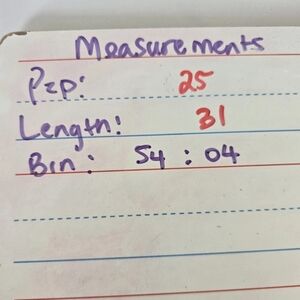 Measurements
Pzp: 25
Length: 31
Bin: 54 : 04